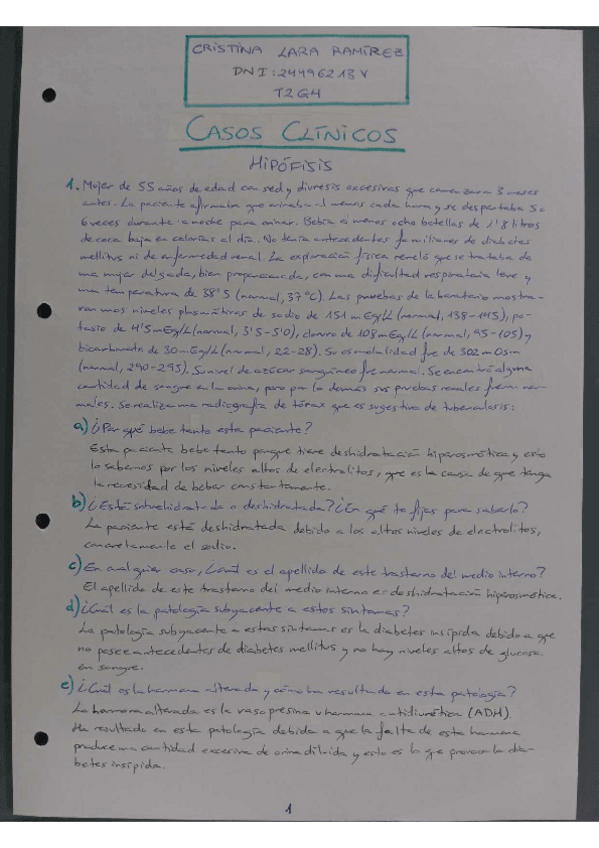 CRISTINA LARA RAMÍREZ
DNI: 24496213V
T2G4
CASOS CLÍNICOS
HIPÓFISIS
1. Mujer de 55 años de edad con sed y diuresis excesivas que comenzaron 3 meses
antes. La paciente afirmaba que orinaba al menos cada hora y se despertaba 5 o
6 veces durante la noche para orinar. Bebía al menos ocho botellas de 1'8 litros
de coca baja en calorías al día. No tenía antecedentes familiares de diabetes
mellitus ni de enfermedad renal. La exploración física reveló que se trataba de
una mujer delgada, bien proporcionada, con una dificultad respiratoria leve y
una temperatura de 38'5 (normal, 37°C). Las pruebas de laboratorio mostra-
ron unos niveles plasmáticos de sodio de 151 mEq/L (normal, 138-145), po-
tasio de 4'5 mEq/L (normal, 3'5-5'0), cloruro de 108 mEq/L (normal, 95-105) y
bicarbonato de 30 mEq/L (normal, 22-28). Su osmolalidad fue de 302 mOsm
(normal, 290-295). Su nivel de azúcar sanguíneo fue normal. Se encontró alguna
cantidad de sangre en la orina, pero por lo demás sus pruebas renales fueron nor-
males. Se realiza una radiografía de tórax que es sugestiva de tuberculosis:
a) ¿Por qué bebe tanto esta paciente?
Esta paciente bebe tanto porque tiene deshidratación hiperosmótica y esto
lo sabemos por los niveles altos de electrolitos, que es la causa de que tenga
la necesidad de beber constantemente.
b) ¿Está sobrehidratada o deshidratada? ¿En qué te fijas para saberlo?
La paciente está deshidratada debido a los altos niveles de electrolitos,
concretamente el sodio.
c) En cualquier caso, ¿cuál es el apellido de este trastorno del medio interno?
El apellido de este trastorno del medio interno es deshidratación hiperosmótica.
d) ¿Cuál es la patología subyacente a estos síntomas?
La patología subyacente a estos síntomas es la diabetes insípida debido a que
no posee antecedentes de diabetes mellitus y no hay niveles altos de glucosa
en sangre.
e) ¿Cuál es la hormona alterada y cómo ha resultado en esta patología?
La hormona alterada es la vasopresina u hormona antidiurética (ADH).
Ha resultado en esta patología debido a que la falta de esta hormona
produce una cantidad excesiva de orina diluida y esto es lo que provoca la dia-
betes insípida.
1